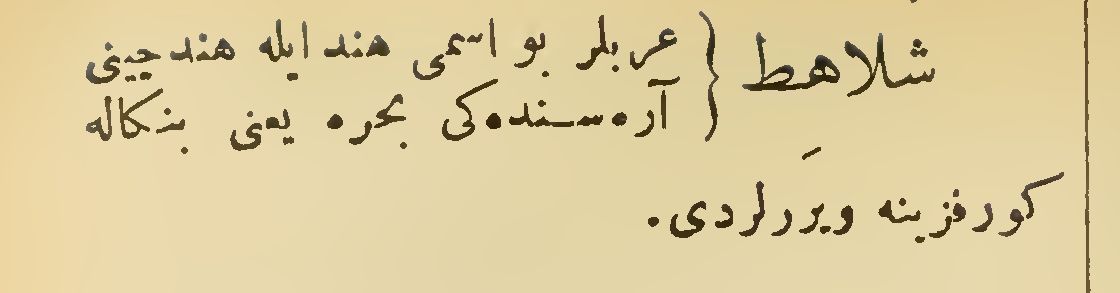 شلاهِط { عربلر بو اسمی هند ایله هند چینی
آره‌سنده‌کی بحره یعنی بنکاله
کورفزینه ویررلردی.